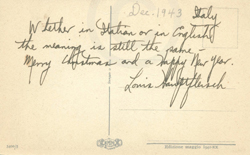 Dec. 1943
Italy
Whether in Italian or in English
the meaning is still the same –
Merry Christmas and a Happy New Year.
Louis